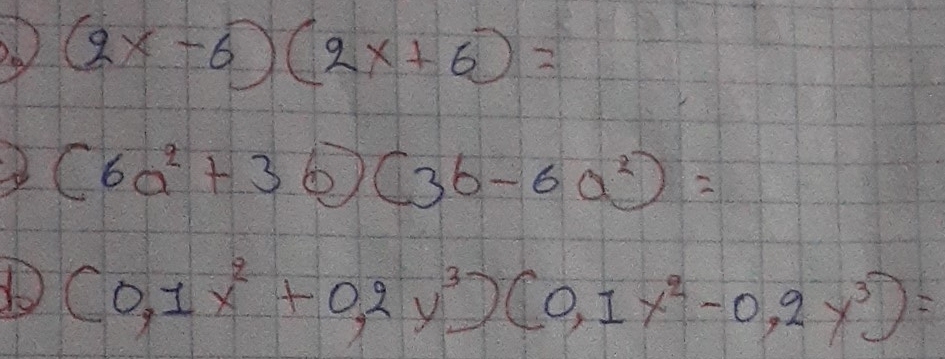 b) (2x - 6)(2x + 6) =
c) (6a² + 3b)(3b - 6a²) =
d) (0,1x² + 0,2y³)(0,1x² - 0,2y³) =